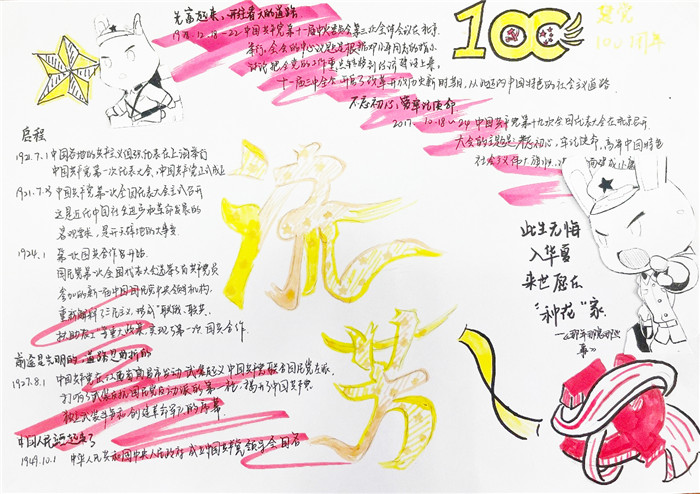 先富起来，开往春天的道路
1978.12.18-22 中国共产党第十一届中央委员会第三次全体会议在北京
举行，会会的中心议题是根据邓小平同志的指示
讨论把全党的工作重点转移到经济建设上来，
十一届三中全会 开启了改革开放历史新时期，从此进入中国特色的社会主义道路
不忘初心，牢记使命
2017.10.18-24 中国共产党第十九次全国代表大会在北京召开
大会的主题是：不忘初心，牢记使命，高举中国特色
社会主义伟大旗帜
100
建党
100周年
启程
1921.7.1 中国各地的共产主义小组代表在上海举行
中国共产党第一次代表大会，中国共产党正式成立
1921.7.23 中国共产党第一次全国代表大会正式召开
这是近代中国社会进步和革命发展的
客观要求，是开天辟地的大事变
1924.1 第一次国共合作的开始
国民党第一次全国代表大会选举了有共产党员
参加的新一届中国国民党中央会的机构，
重新解释了三民主义，形成"联俄、联共、
扶助农工"三大政策，实现了第一次国共合作.
前途是光明的，道路是曲折的
1927.8.1 中国共产党在江西省南昌市发动武装起义
打响了武装反抗国民党反动派的第一枪，揭开了中国共产党
独立武装斗争和创建革命军队的序幕
中国人民站起来了
1949.10.1 中华人民共和国中央人民政府成立 中国共产党领导全国各
流
芳
此生无悔
入华夏
来世愿在
"种花"家.